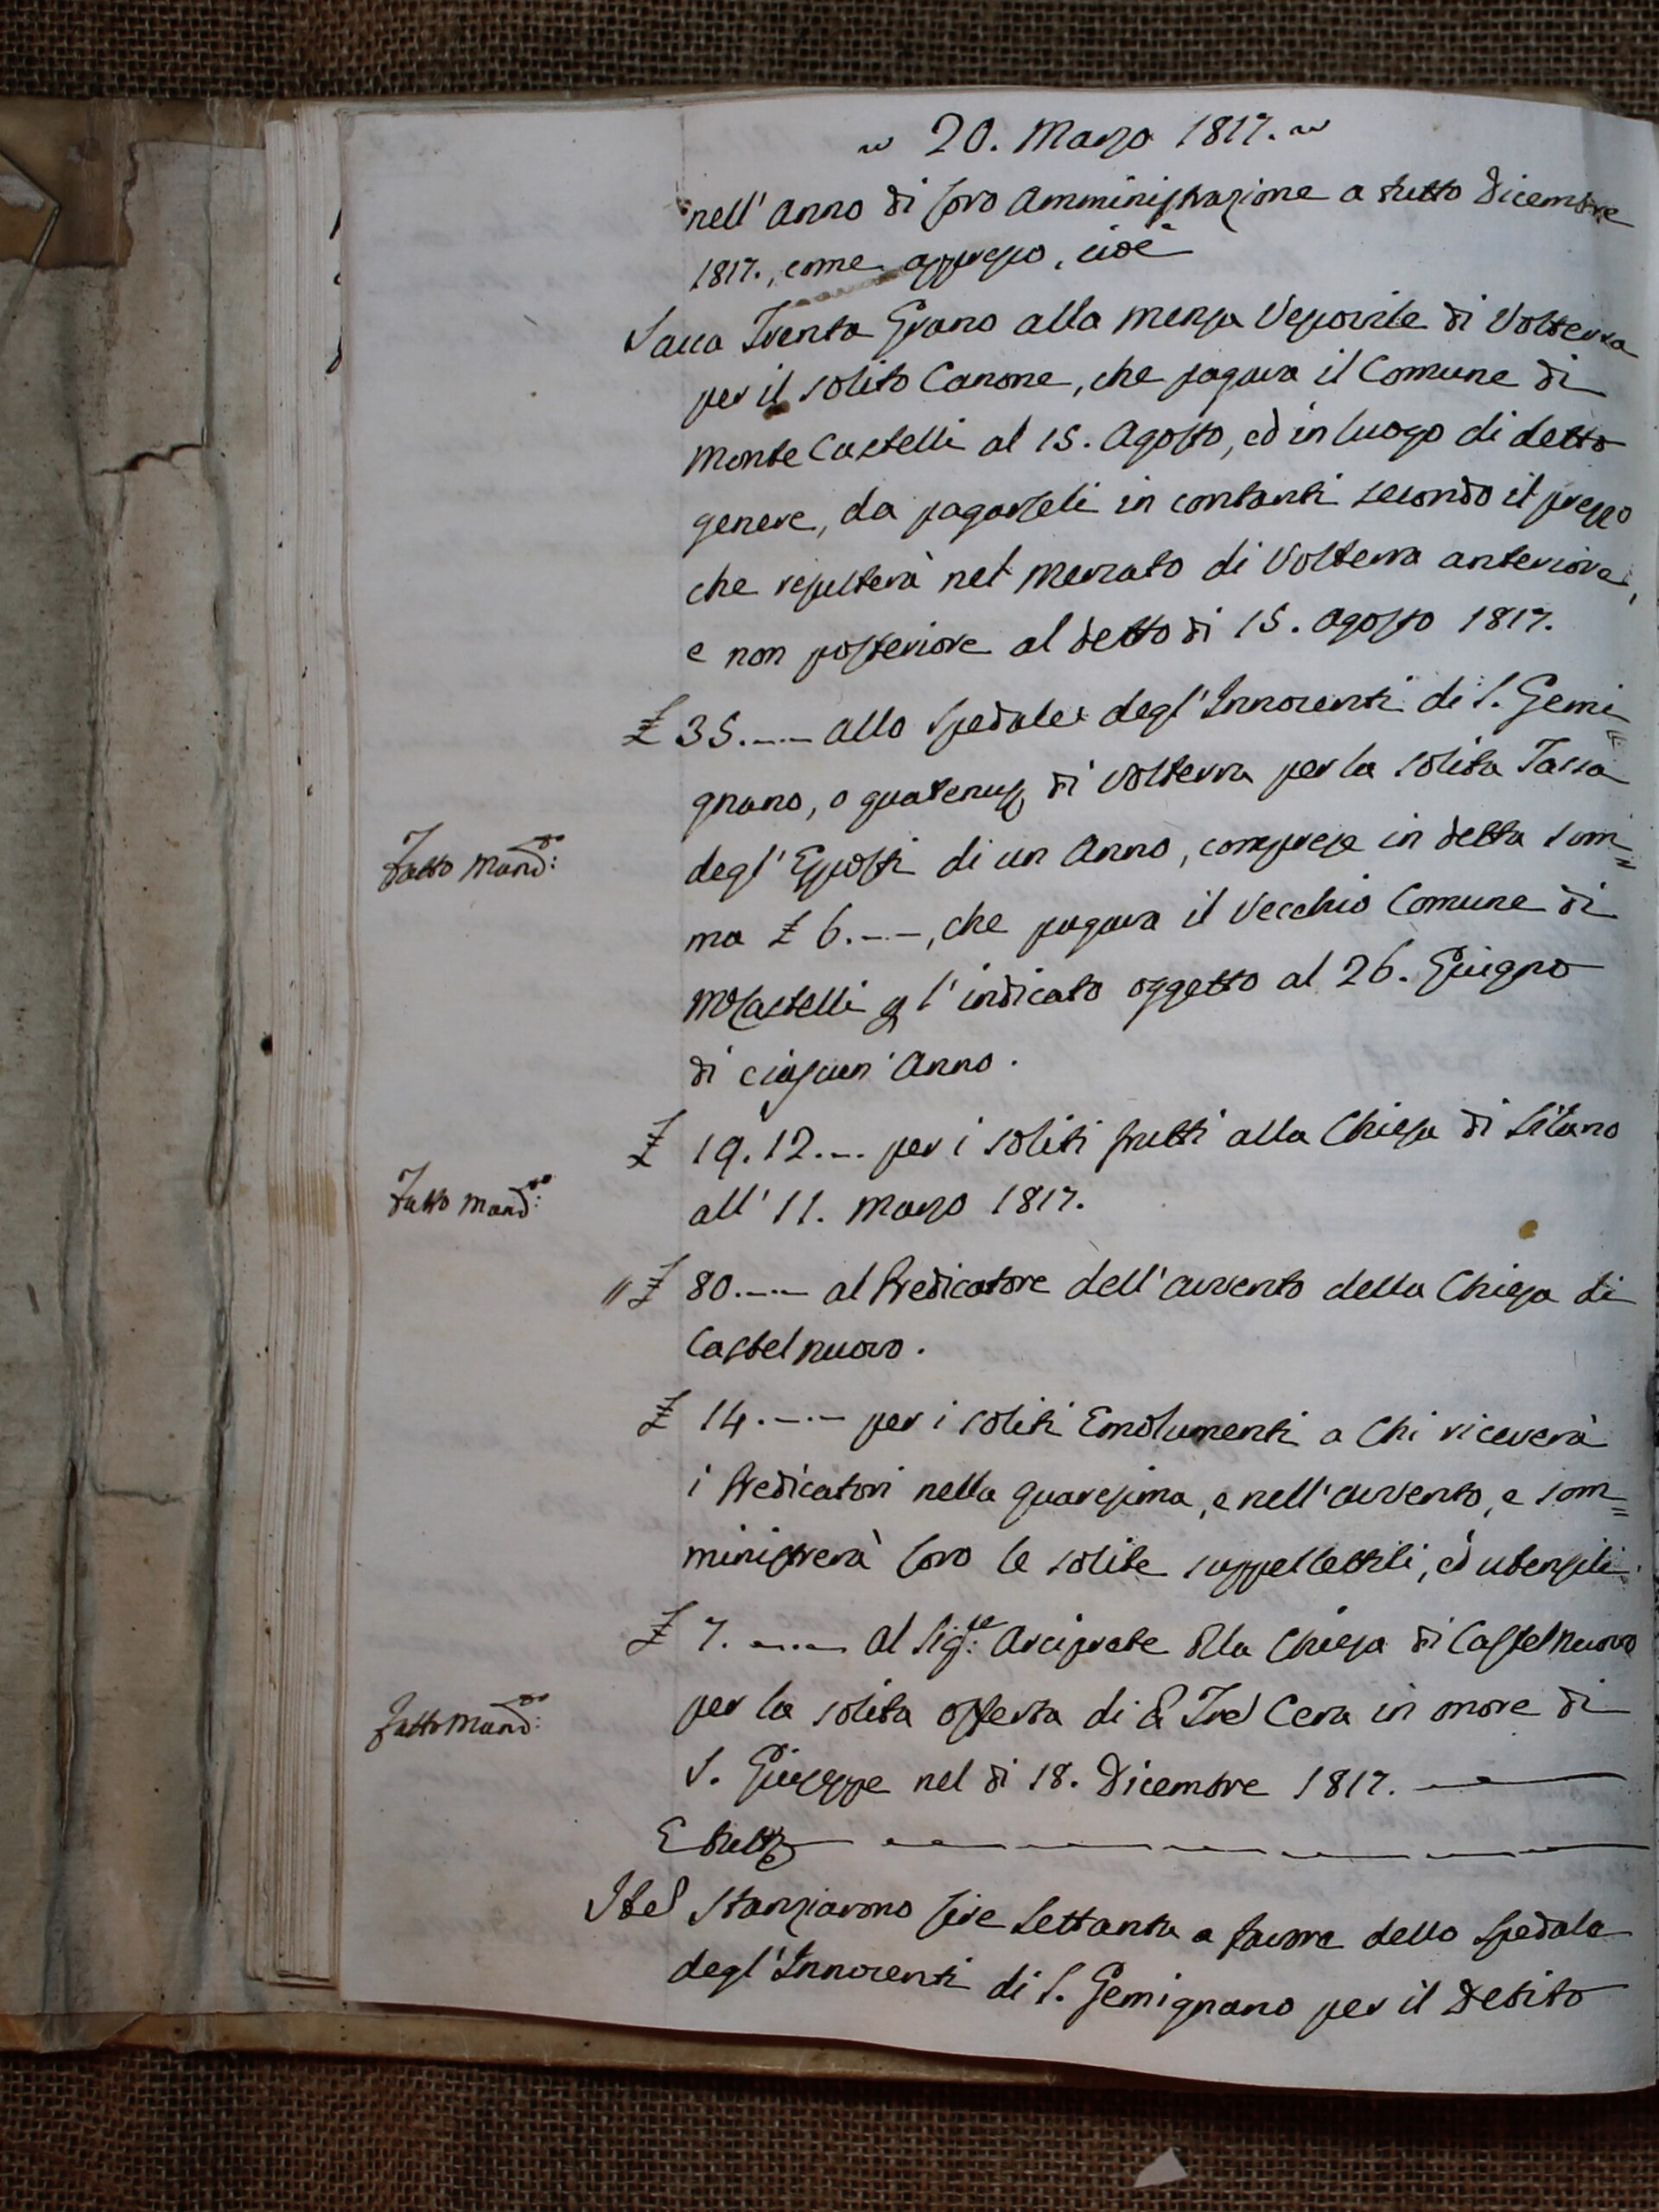 ~ 20. Marzo 1817. ~
nell' Anno di loro Amministrazione a tutto Dicembre
1817., come appresso, cioè
Sacca Trenta Grano alla mensa Vescovile di Volterra
per il solito Canone, che pagava il Comune di
Monte Castelli al 15. Agosto, ed in luogo di detto
genere, da pagarseli in contanti secondo il prezzo
che resulterà nel mercato di Volterra anteriore,
e non posteriore al detto dì 15. Agosto 1817.
£ 35.-.- allo Spedale degl' Innocenti di S. Gemi=
gnano, o quatenus di Volterra per la solita Tassa
Fatto Mand:to
degl' Esposti di un Anno, comprese in detta som=
ma £ 6.-.-, che pagava il Vecchio Comune di
MCastelli p l' indicato oggetto al 26. Giugno
di ciascun' Anno.
£ 19.12.-. per i soliti frutti alla Chiesa di Silano
Fatto Mand:to
all' 11. Marzo 1817.
" £ 80.-.- al Predicatore dell' Avvento della Chiesa di
Castelnuovo.
£ 14.-.- per i soliti Emolumenti a Chi riceverà
i Predicatori nella quaresima, e nell' Avvento, e som=
ministrerà loro le solite suppellettili, ed utensili.
£ 7.-.- al Sig:re Arciprete della Chiesa di Castelnuovo
Fatto Mand:to
per la solita offerta di Tre Cera in onore di
S. Giuseppe nel dì 18. Dicembre 1817.
E tutto
Item Stanziarono lire Settanta a favore dello Spedale
degl' Innocenti di S. Gemignano per il Debito